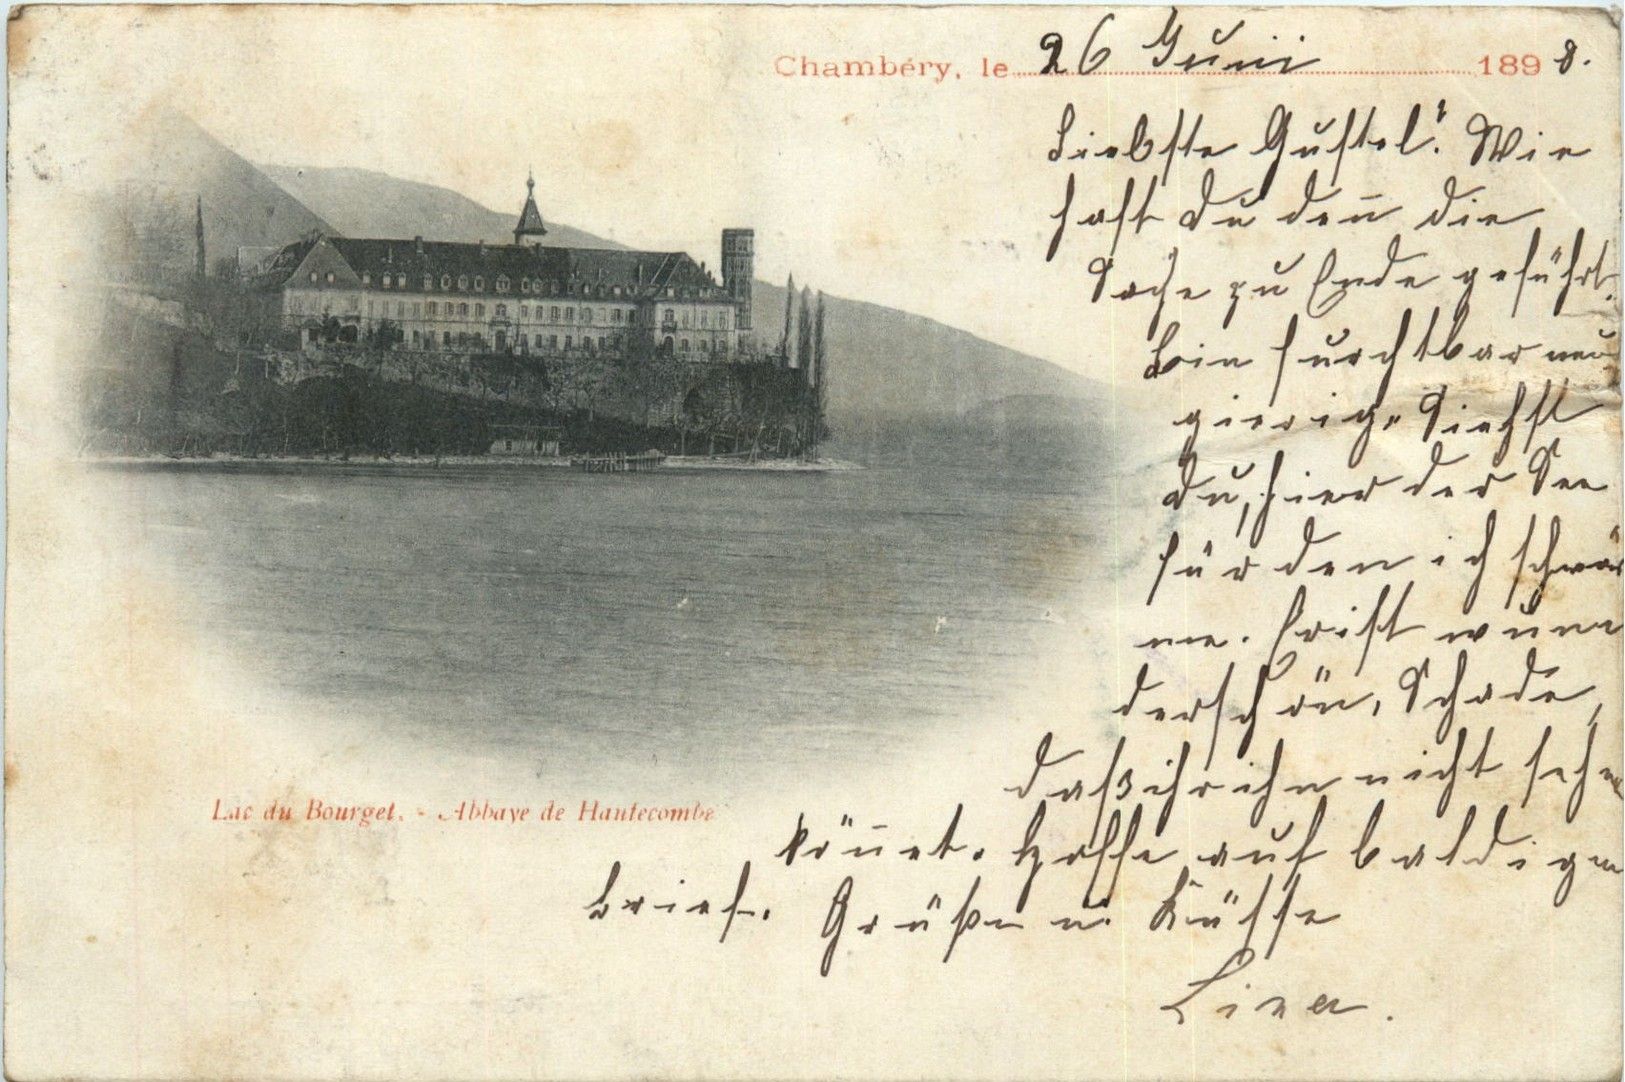 Chambéry, le 26 Juni 1898.
Liebste Gustel! Wie
hast du den̅ die
Sache zu Ende geführt.
Bin furchtbar neu
gierig. Siehst
Du, hier der See
für den ich schwär
me. Er ist wun
derschön. Schade,
daß ihr ihn nicht sehn
kön̅et. Hoffe auf baldigen
Brief. Grüße u. Küsse
Lina.
Lac du Bourget. - Abbaye de Hautecombe